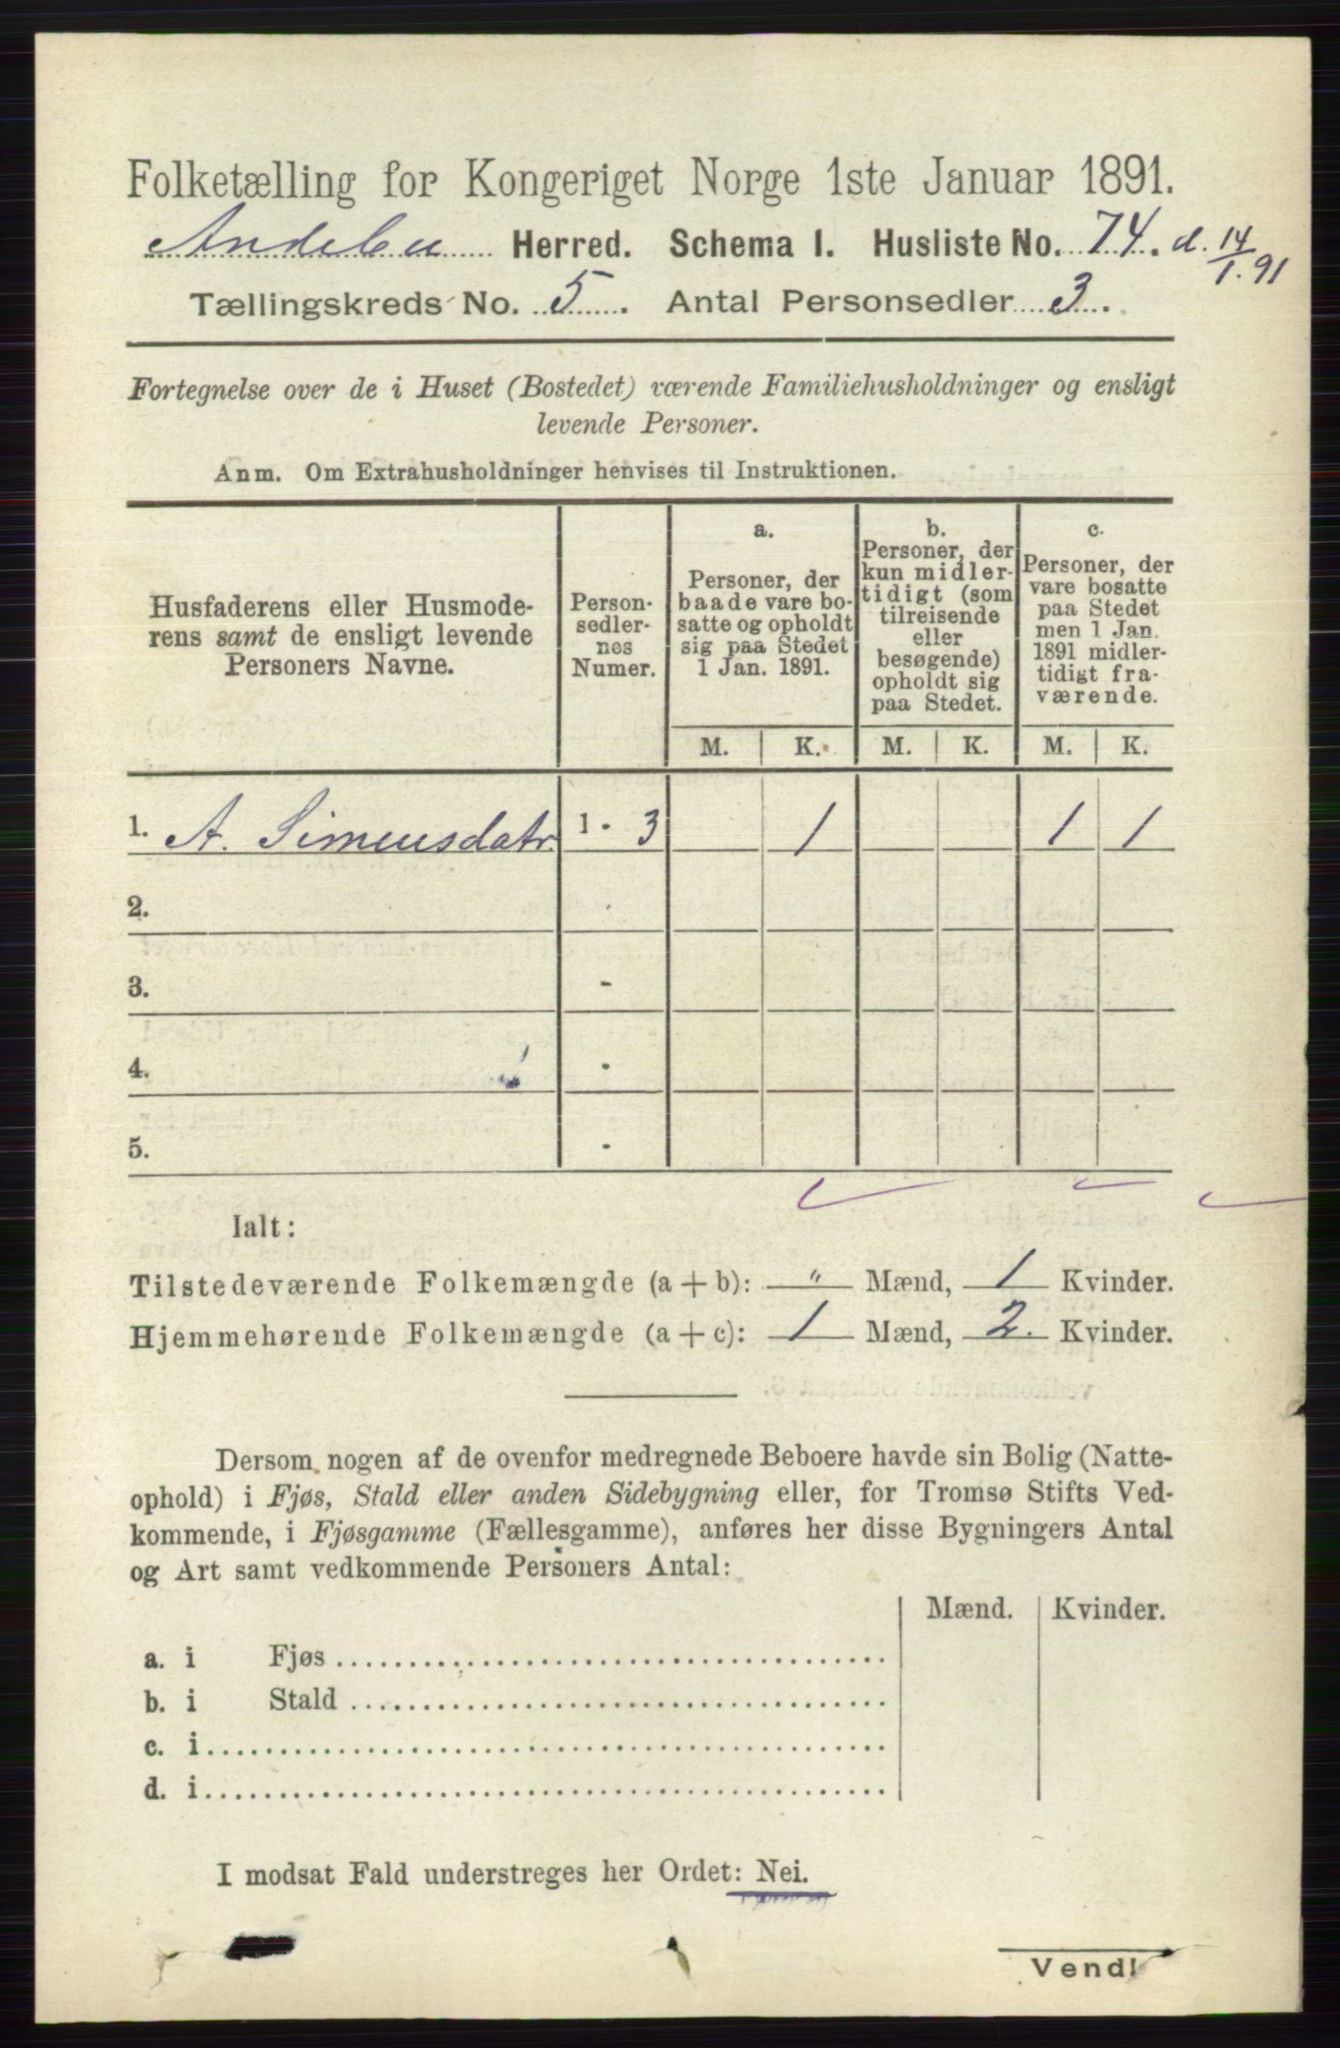 Folketælling for Kongeriget Norge 1ste Januar 1891.
Andebu Herred. Schema I. Husliste No. 74. d. 14/1.91
Tællingskreds No. 5. Antal Personsedler 3.
Fortegnelse over de i Huset (Bostedet) værende Familiehusholdninger og ensligt
levende Personer.
Anm. Om Extrahusholdninger henvises til Instruktionen.
Husfaderens eller Husmode-
rens samt de ensligt levende
Personers Navne.
Person-
sedler-
nes
Numer.
a.
Personer, der
baade vare bo-
satte og opholdt
sig paa Stedet
1 Jan. 1891.
b.
Personer, der
kun midler-
tidigt (som
tilreisende
eller
besøgende)
opholdt sig
paa Stedet.
c.
Personer, der
vare bosatte
paa Stedet
men 1 Jan.
1891 midler-
tidigt fra-
værende.
M. K. M. K. M. K.
1. A. Simensdatr. 1 - 3 1 1 1
2.
3. -
4. -
5. -
Ialt:
Tilstedeværende Folkemængde (a + b): " Mænd, 1 Kvinder.
Hjemmehørende Folkemængde (a + c): 1 Mænd, 2. Kvinder.
Dersom nogen af de ovenfor medregnede Beboere havde sin Bolig (Natte-
ophold) i Fjøs, Stald eller anden Sidebygning eller, for Tromsø Stifts Ved-
kommende, i Fjøsgamme (Fællesgamme), anføres her disse Bygningers Antal
og Art samt vedkommende Personers Antal:
Mænd. Kvinder.
a. i Fjøs
b. i Stald
c. i
d. i
I modsat Fald understreges her Ordet: Nei.
Vend!